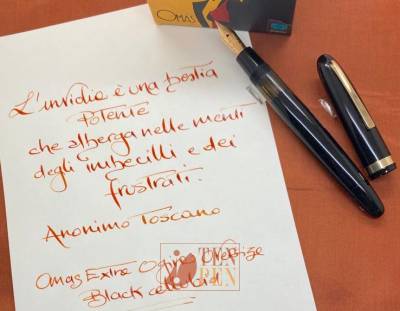 OMAS
L'invidia è una bestia
potente
che alberga nelle menti
degli imbecilli e dei
frustrati.
Anonimo Toscano
Omas Extra Ogiva Oversize
Black celluloid
TEN PEN